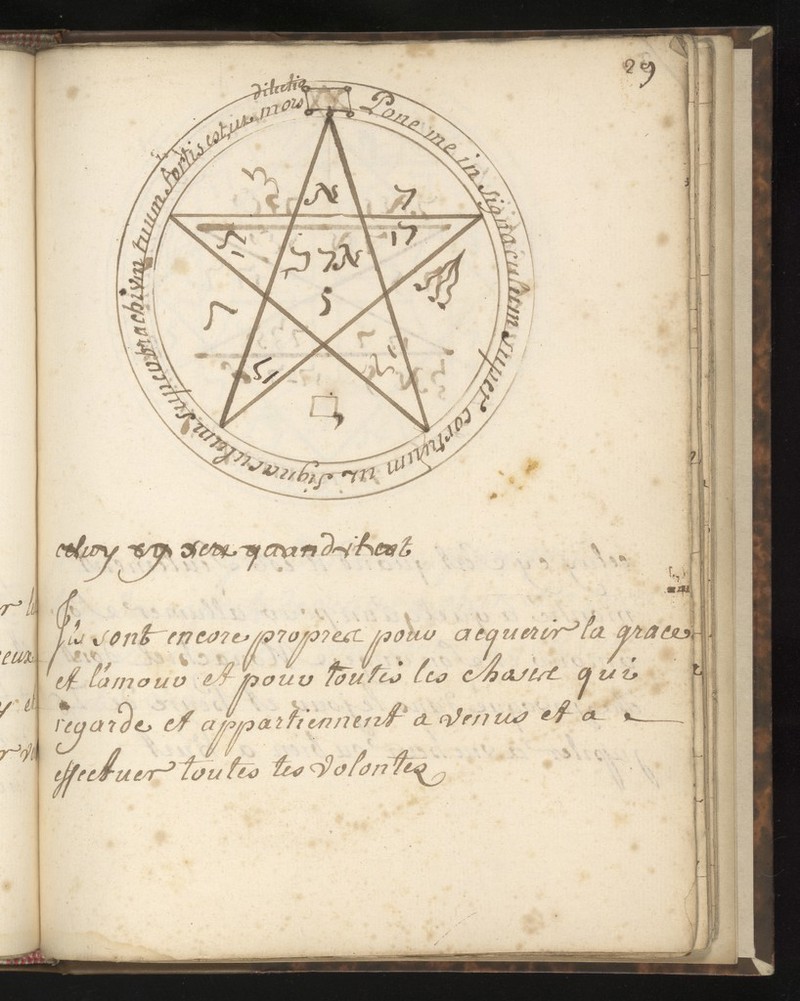 29
Pone me in signaculum super cortuum ut signaculum sup cobrachivm tuum fortis est ut mors
dilectio
quand il est
Ils sont encore propres pour acquerir la grace
et lamour et pour toutes les choses qui
regarde et appartiennent a venus et a
effectuer toutes tes volontez